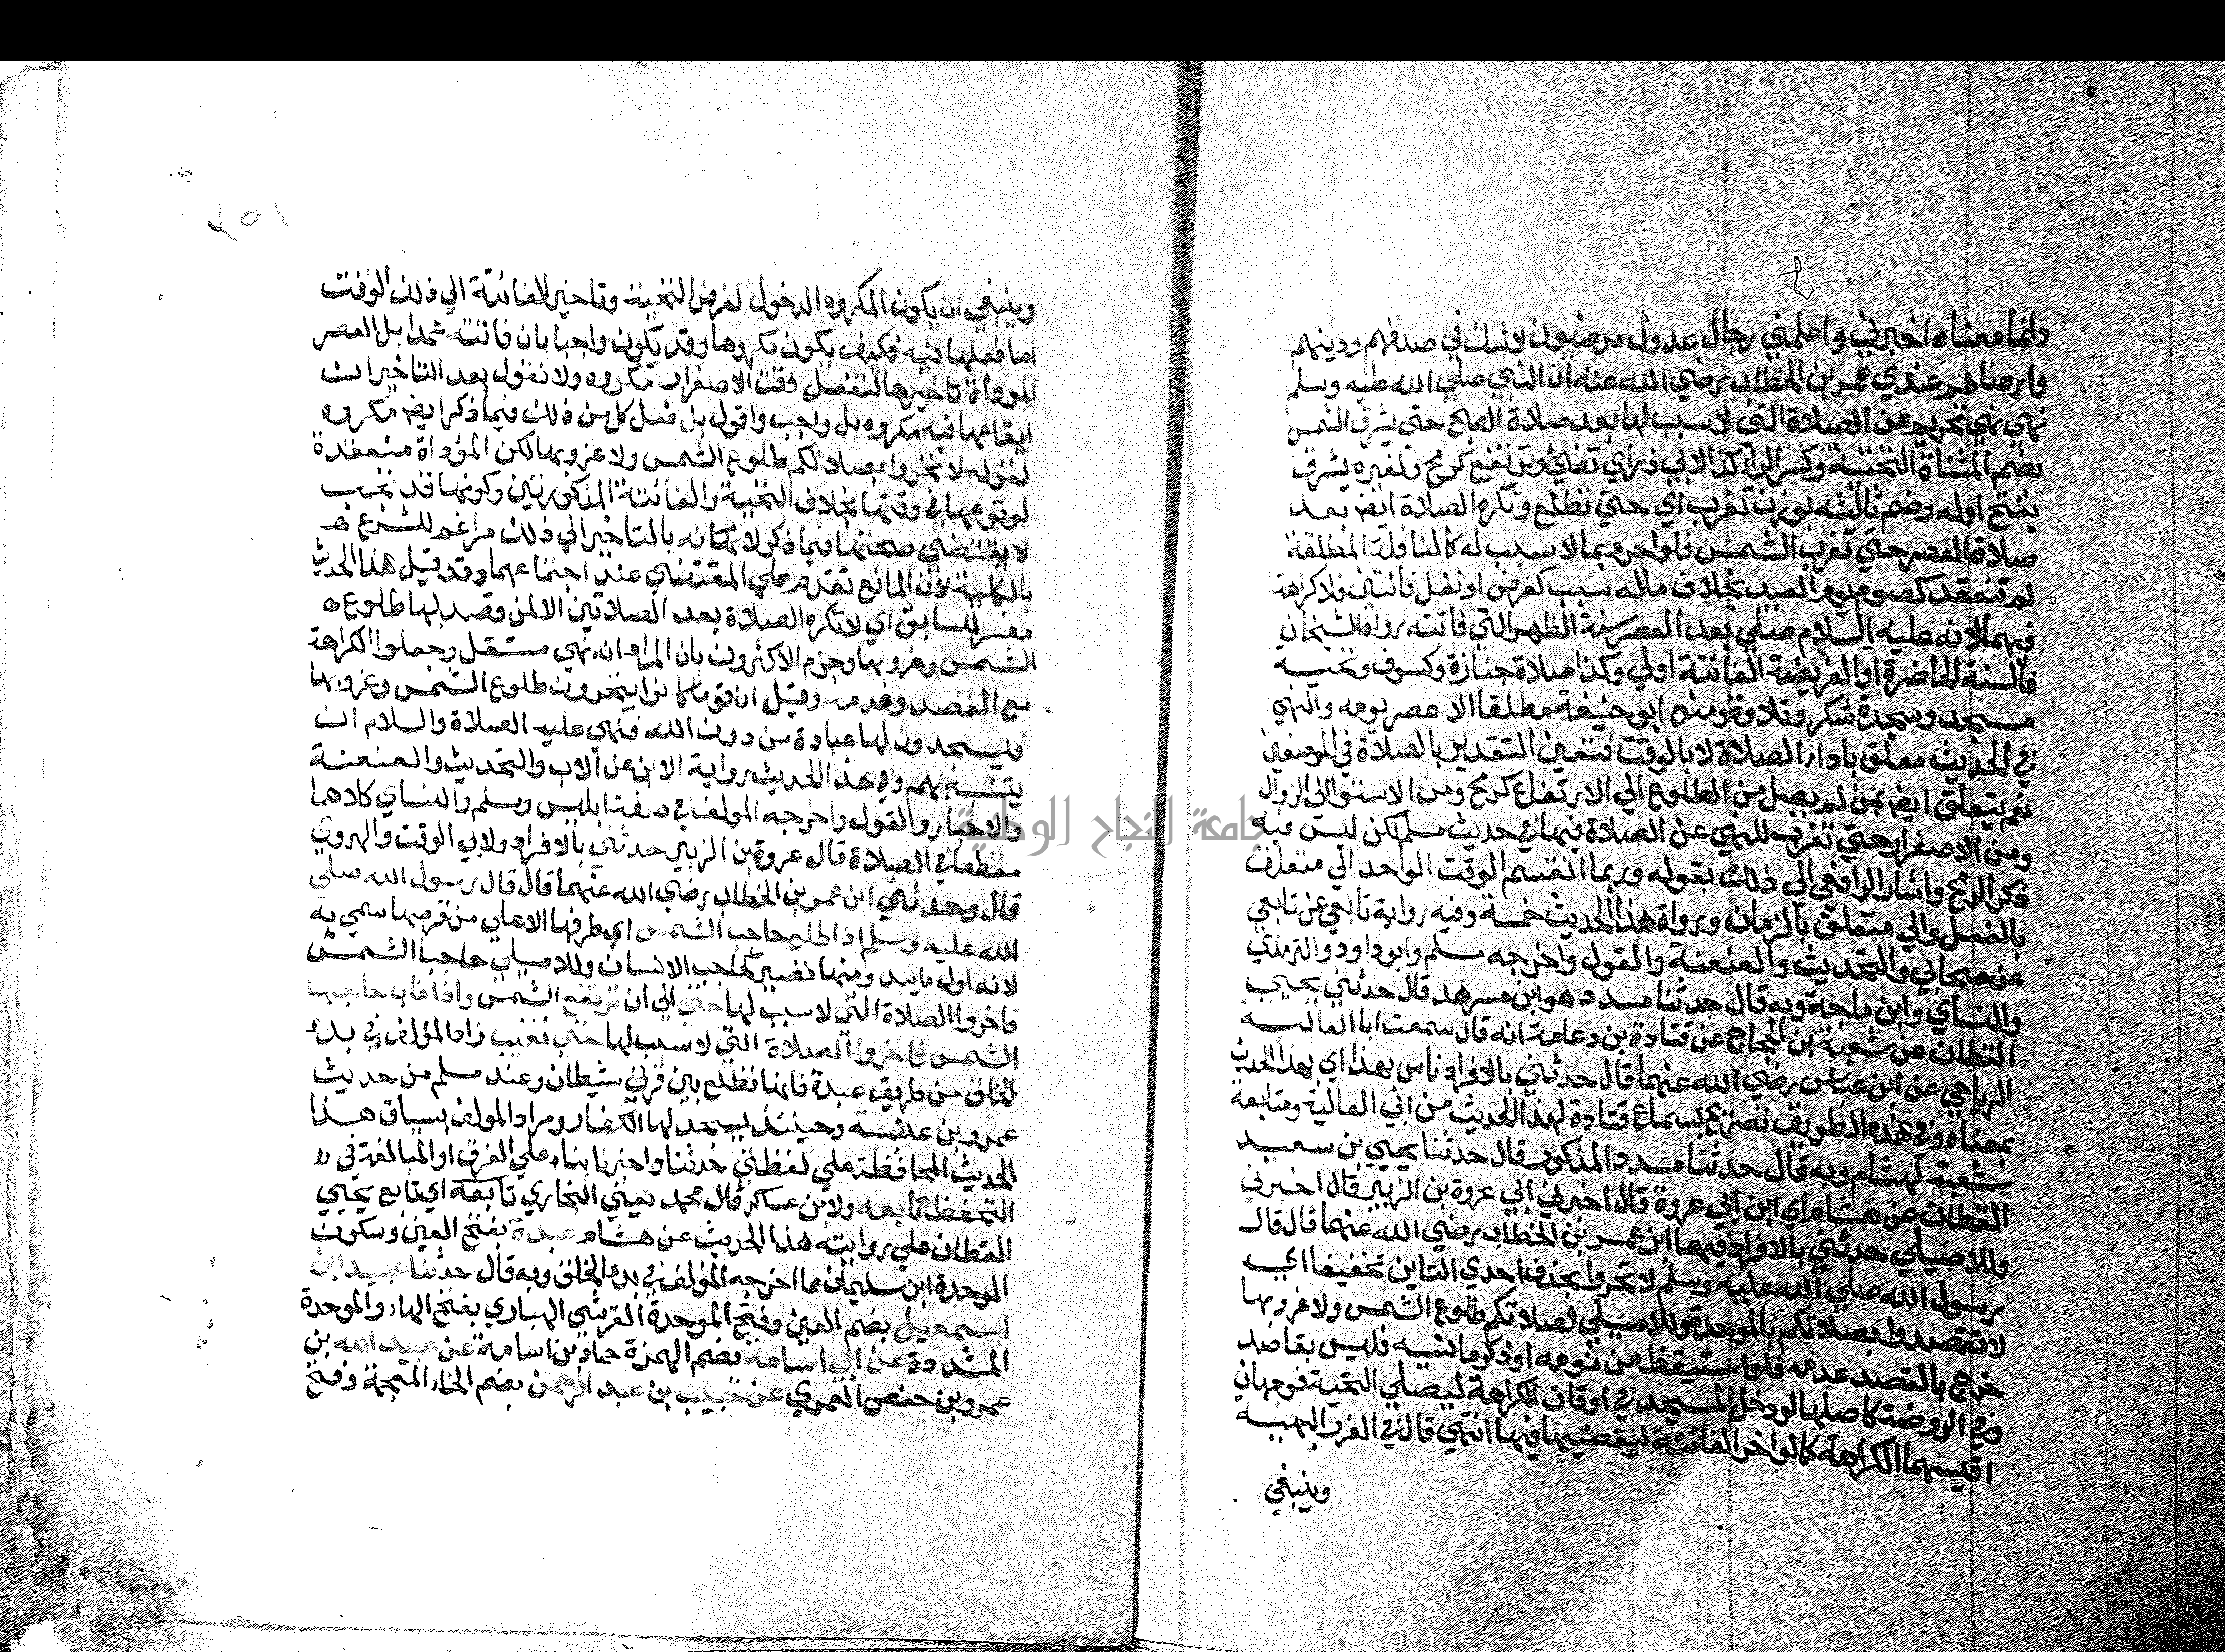 وانما معناه اخبرني واعلمني رجال عدول مرضيون لاشك في صدقهم ودينهم
وارضاهم عندي عمر بن الخطاب رضي الله عنه ان النبي صلي الله عليه وسلم
نهي نهي تحريم عن الصلاة التي لا سبب لها بعد صلاة الصبح حتي يشرق الشمس
بضم المثناة التحتية وكسر الراء كذا لابي ذر اي تضئ وترتفع كرمح ولغيره يشرق
بفتح اوله وضم ثالثه بوزن تغرب اي حتي تطلع وتكره الصلاة ايضا بعد
صلاة العصر حتي تغرب الشمس فلو احرم بما لا سبب له كالنافلة المطلقة
لم تنعقد كصوم يوم العيد بخلاف ماله سبب كفرض او نفل فائتين فلا كراهة
فيهما لانه عليه السلام صلي بعد العصر سنة الظهر التي فاتته رواه الشيخان
فالسنة الحاضرة او الفريضة الفائتة اولي وكذا صلاة جنازة وكسوف وتحية
مسجد وسجدة شكر وتلاوة ومنع ابو حنيفة مطلقا الا عصر يومه والنهي
في الحديث معلق باداء الصلاة لا بالوقت فتعين التقدير بالصلاة في الموضعين
نعم يتعلق ايضا بمن لم يصل من الطلوع الي الارتفاع كرمح ومن الاستوا الي الزوال
ومن الاصفرار حتي تغرب للنهي عن الصلاة فيها في حديث مسلم لكن ليس فيه
ذكر الرمح واشار الرافعي الي ذلك بقوله وربما انقسم الوقت الواحد الي متعلق
بالفعل والي متعلق بالزمان ورواة هذا الحديث خمسة وفيه رواية تابعي عن تابعي
عن صحابي والتحديث والعنعنة والقول واخرجه مسلم وابو داود والترمذي
والنساي وابن ماجة وبه قال حدثنا مسدد هو ابن مسرهد قال حدثني يحيي
القطان عن شعبة بن الحجاج عن قتادة بن دعامة انه قال سمعت ابا العالية
الرياحي عن ابن عباس رضي الله عنهما قال حدثني بالافراد ناس بهذا اي بهذا الحديث
بمعناه وفي هذه الطريق تصريح بسماع قتادة لهذا الحديث من ابي العالية ومتابعة
شعبة لهشام وبه قال حدثنا مسدد المذكور قال حدثنا يحيي بن سعيد
القطان عن هشام اي ابن ابي عروة قال اخبرني ابي عروة بن الزبير قال اخبرني
وللاصيلي حدثني بالافراد فيهما ابن عمر بن الخطاب رضي الله عنهما قال قال
رسول الله صلي الله عليه وسلم لا تحروا بحذف احدي التاين تخفيفا اي
لا تقصدوا بصلاتكم بالموحدة وللاصيلي لصلاتكم طلوع الشمس ولا غروبها
خرج بالقصد عدمه فلو استيقظ من نومه او ذكر ما نسيه فليس بقاصد
وفي الروضة كاصلها لو دخل المسجد في اوقات الكراهة ليصلي التحية فوجهان
اقيسهما الكراهة كما لو اخر الفائتة ليقضيها فيها انتهي قال في الغرر البهية
وينبغي
وينبغي ان يكون المكروه الدخول لغرض التحية وتاخير الفائتة الي ذلك الوقت
اما فعلها فيه فكيف يكون مكروها وقد يكون واجبا بان فاتته عمدا بل العصر
المؤداة تاخيرها لتفعل وقت الاصفرار مكروه ولا نقول بعد التاخير ان
ايقاعها فيه مكروه بل واجب واقول بل فعل كل من ذلك فيما ذكر ايضا مكروه
لقوله لا تحروا بصلاتكم طلوع الشمس ولا غروبها لكن المؤداة منعقدة
لوقوعها في وقتها بخلاف التحية والفائتة المذكورتين وكونها قد تجب
لا يقتضي صحتها فيما ذكر لا مكانه بالتاخير الي ذلك مراغم للشرع
بالكلية لان المانع تقدم علي المقتضي عند اجتماعهما وقد قيل هذا الحديث
مفسر للسابق اي لا تكره الصلاة بعد الصلاتين الا لمن قصد بها طلوع
الشمس وغروبها وجزم الاكثرون بان المراد انه نهي مستقل وجعلوا الكراهة
مع القصد وعدمه وقيل ان قوما كانوا يتحرون طلوع الشمس وغروبها
فيسجدون لها عبادة من دون الله فنهي عليه الصلاة والسلام ان
يتشبه بهم وفي هذا الحديث رواية الابن عن الاب والتحديث والعنعنة
والاخبار والقول واخرجه المولف في صفة ابليس ومسلم والنساي كلاهما
مقطعا في الصلاة قال عروة بن الزبير حدثني بالافراد ولابي الوقت والهروي
قال وحدثني ابن عمر بن الخطاب رضي الله عنهما قال قال رسول الله صلي
الله عليه وسلم اذا طلع حاجب الشمس اي طرفها الاعلي من قرصها سمي به
لانه اول ما يبد ومنها نصير كحاجب الانسان وللاصيلي حاجبا الشمس
فاخروا الصلاة التي لا سبب لها حتي الي ان ترتفع الشمس واذا غاب حاجبها
الشمس فاخروا الصلاة التي لا سبب لها حتي تغيب زاد المؤلف في بدئ
الخلق من طريق عبدة فانها تطلع بين قرني شيطان وعند مسلم من حديث
عمرو بن عنبسة وحينئذ يسجد لها الكفار ومراد المولف بسياق هذا
الحديث المحافظة علي لفظتي حدثنا واخبرنا بناء علي الفرق او المبالغة في
التحفظ تابعه ولابن عساكر قال محمد يعني البخاري تابعه اي تابع يحيي
القطان علي روايته هذا الحديث عن هشام عبدة بفتح العين وسكون
الموحدة ابن سليمان مما اخرجه المؤلف في بدء الخلق وبه قال حدثنا عبيد ابن
اسمعيل بضم العين وفتح الموحدة القرشي الهباري بفتح الهاء والموحدة
المشددة عن ابي اسامة بضم الهمزة حماد بن اسامة عن عبيد الله بن
عمرو بن حفص العمري عن خبيب بن عبد الرحمن بضم الخاء المعجمة وفتح
جامعة النجاح الوطنية